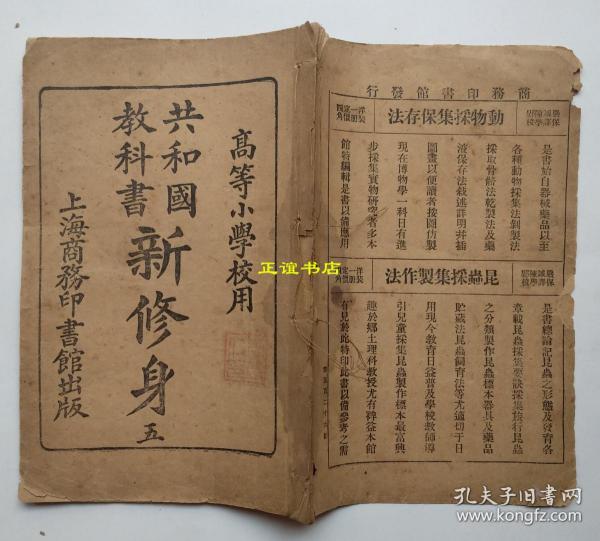 高等小學校用
共和國
教科書
新修身
五
上海商務印書館出版
商務印書館發行
動物採集保存法
洋裝一册
定價四角
是書始自器械藥品以至
各種動物採集法剝製法
採取骨骼法乾製法及藥
液保存法敍述詳明幷插
圖畫以便讀者按圖仿製
現在博物學一科日有進
步採集實物研究者多本
館特編輯是書以備應用
昆蟲採集製作法
洋裝一册
是書總論記昆蟲之形態及發育各
章載昆蟲採集要訣採集旅行昆蟲
之分類製作昆蟲標本器具及藥品
貯藏法昆蟲飼育法等尤適切于日
用現今教育日益普及學校教師導
引兒童採集昆蟲製作標本最富興
趣於鄉土理科教授尤有裨益本館
有見於此特印此書以備參考之需
正谊书店
孔夫子旧书网
www.kongfz.com